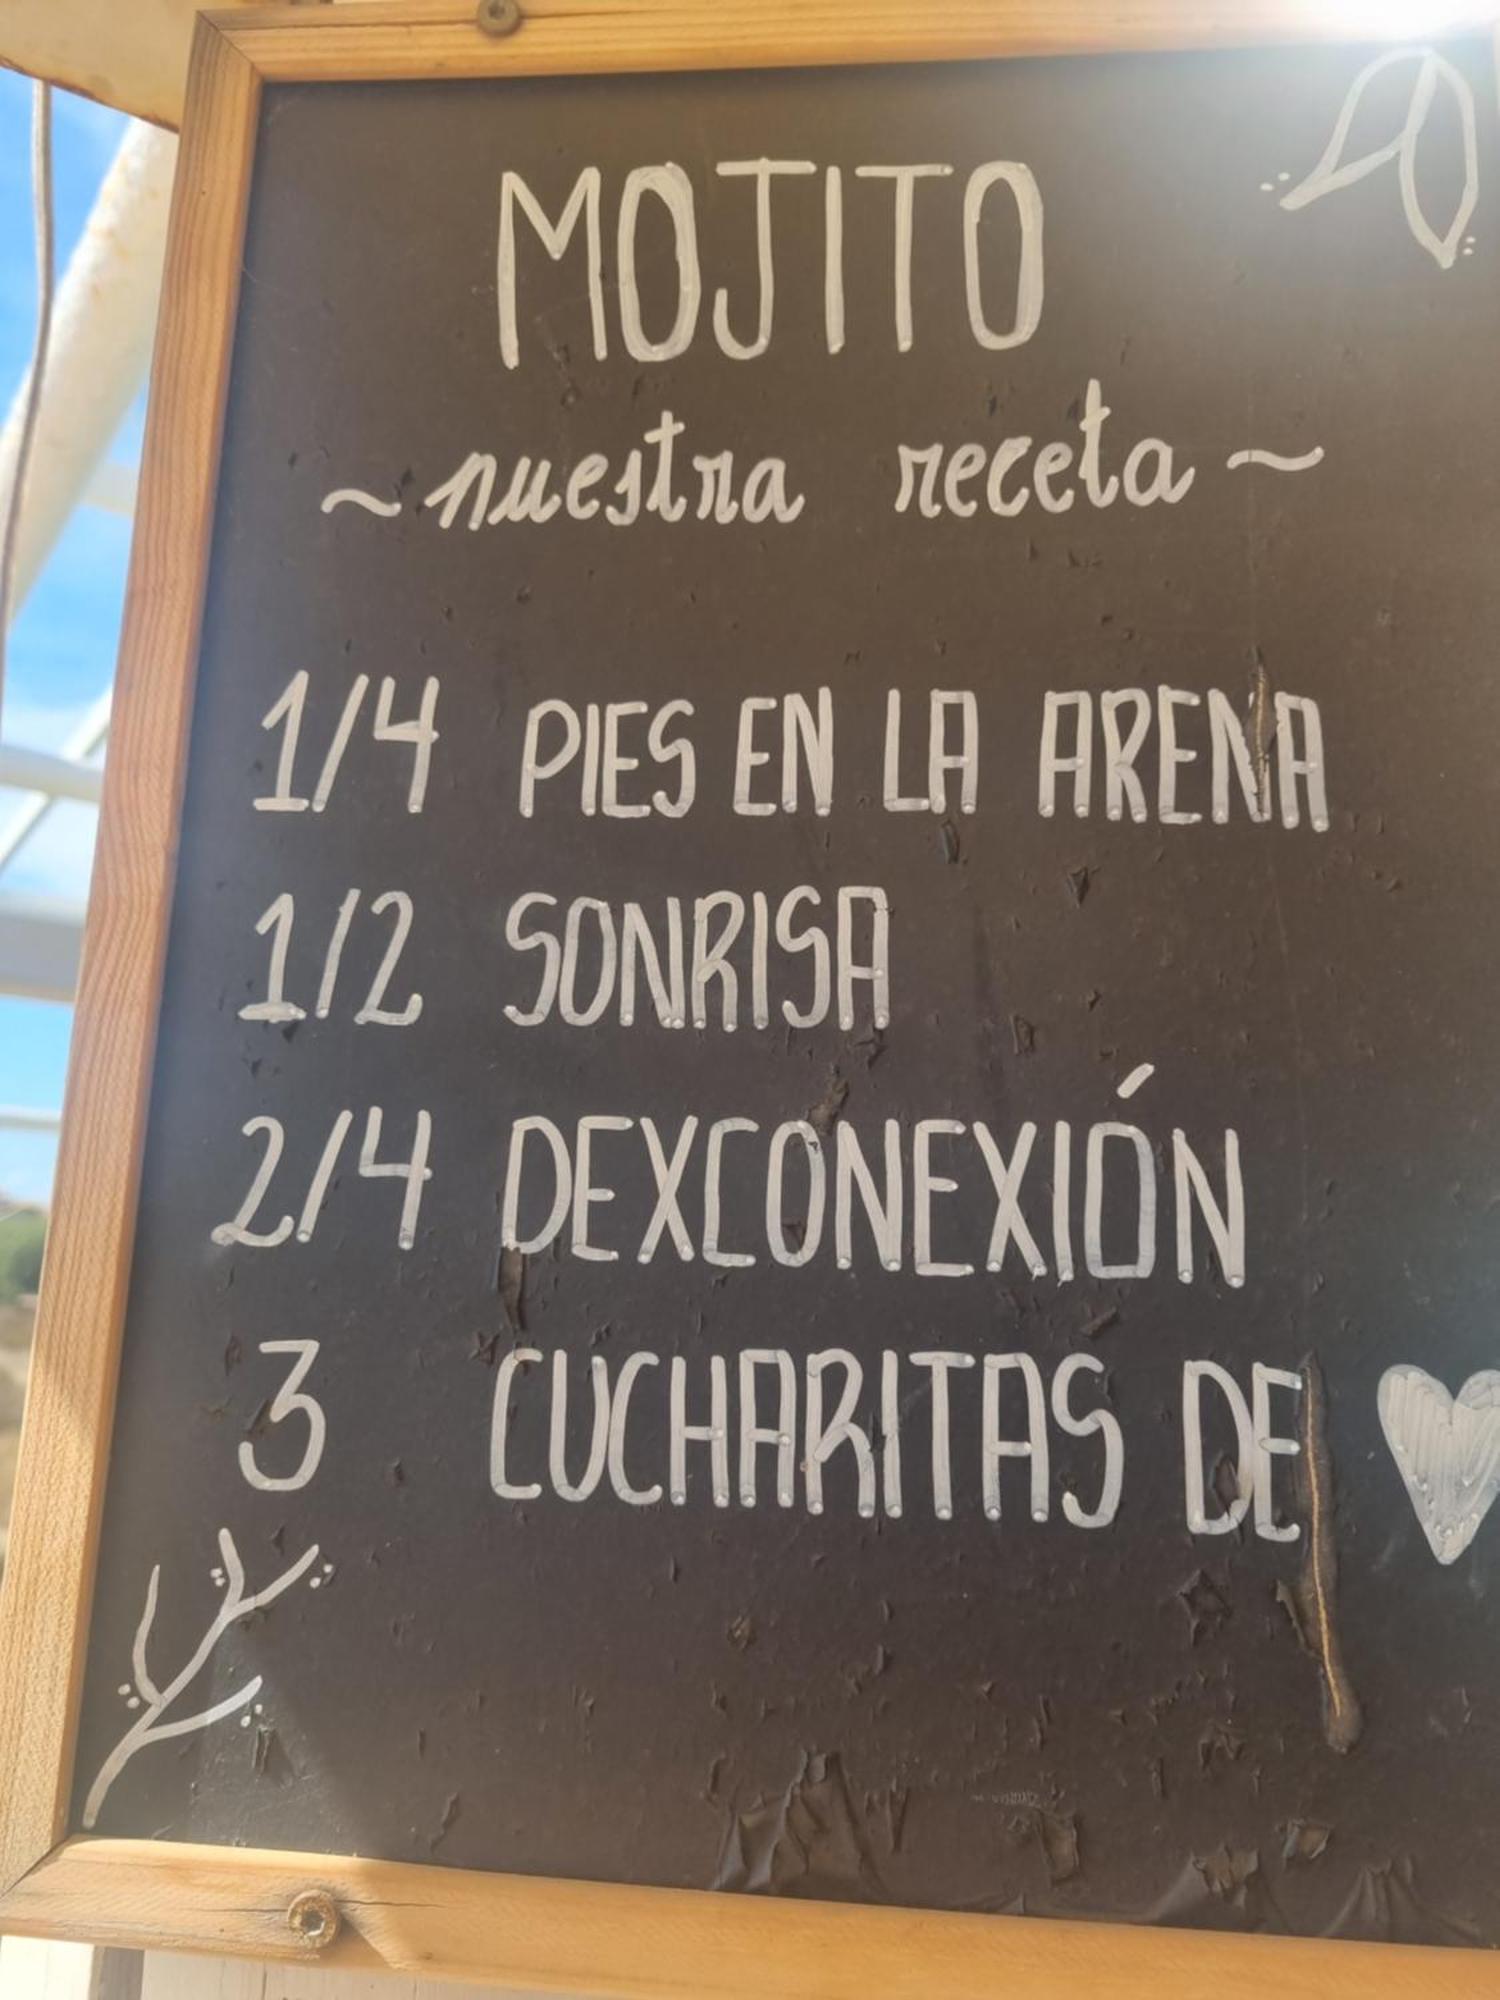 MOJITO
~ nuestra receta ~
1/4 PIES EN LA ARENA
1/2 SONRISA
2/4 DEXCONEXIÓN
3 CUCHARITAS DE ♥